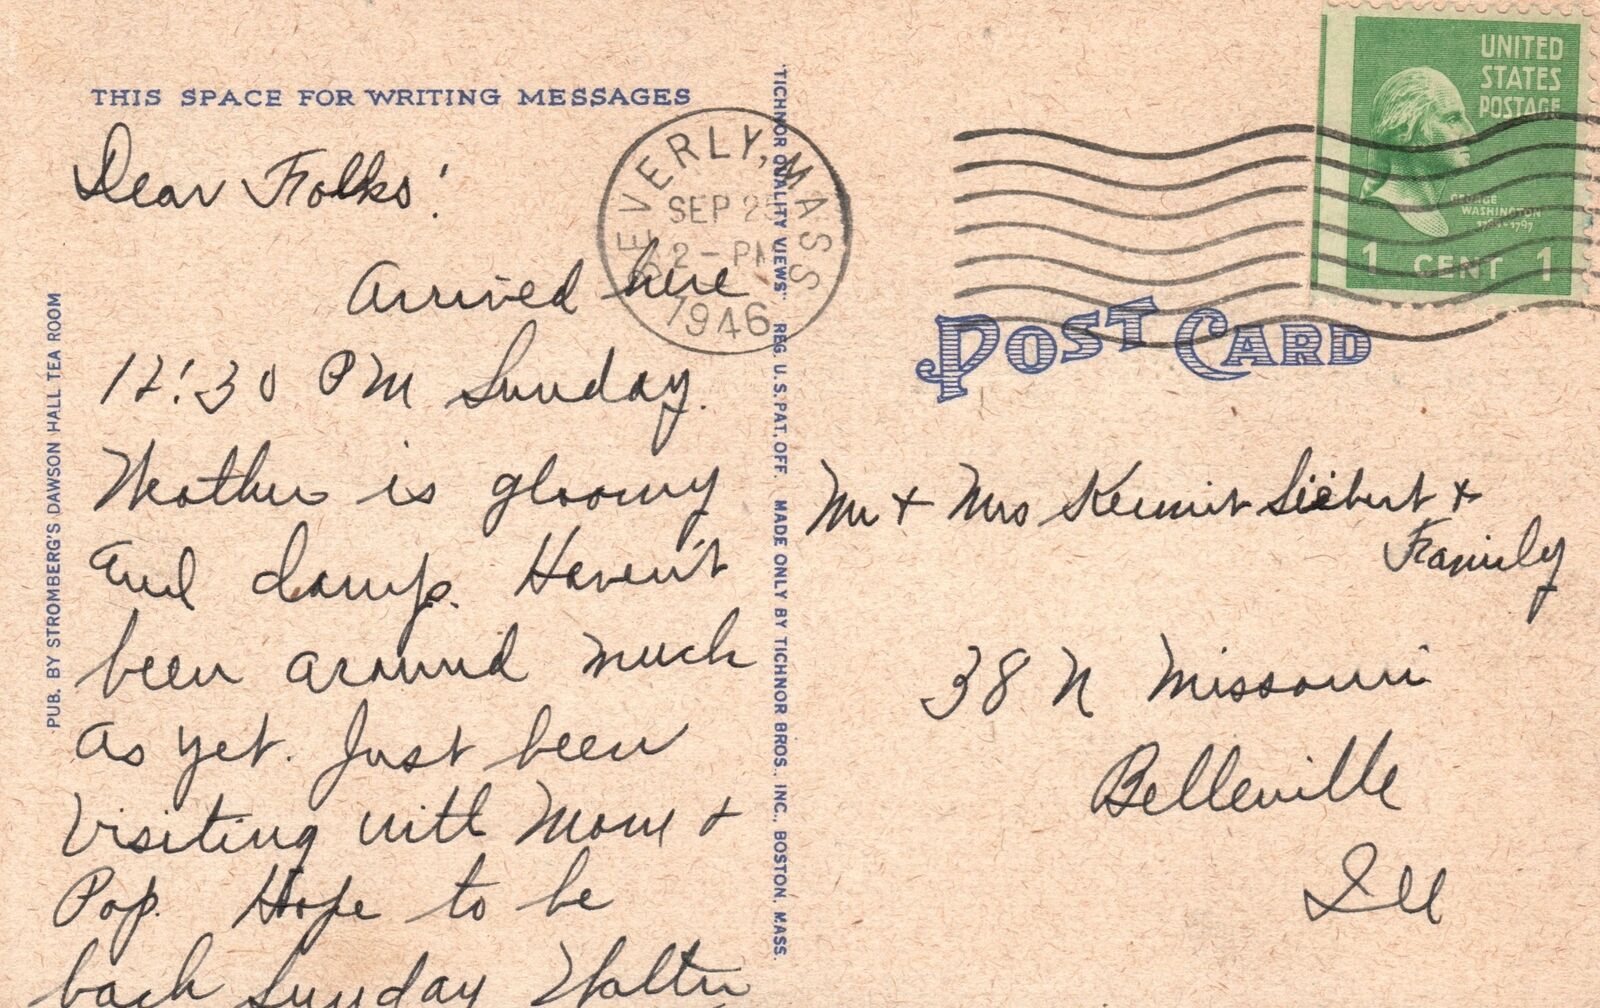 THIS SPACE FOR WRITING MESSAGES
Dear Folks!
Arrived here
12:30 PM Sunday.
Weather is gloomy
and damp. Haven't
been around much
as yet. Just been
visiting with Mom +
Pop. Hope to be
back Sunday Walter
PUB. BY STROMBERG'S DAWSON HALL TEA ROOM
"TICHNOR QUALITY VIEWS" REG. U.S. PAT. OFF. MADE ONLY BY TICHNOR BROS., INC., BOSTON, MASS.
BEVERLY, MASS
SEP 25
2 - PM
1946
UNITED
STATES
POSTAGE
GEORGE
WASHINGTON
1 CENT 1
POST CARD
Mr + Mrs Kermit Siebert +
Family
38 N Missouri
Belleville
Ill